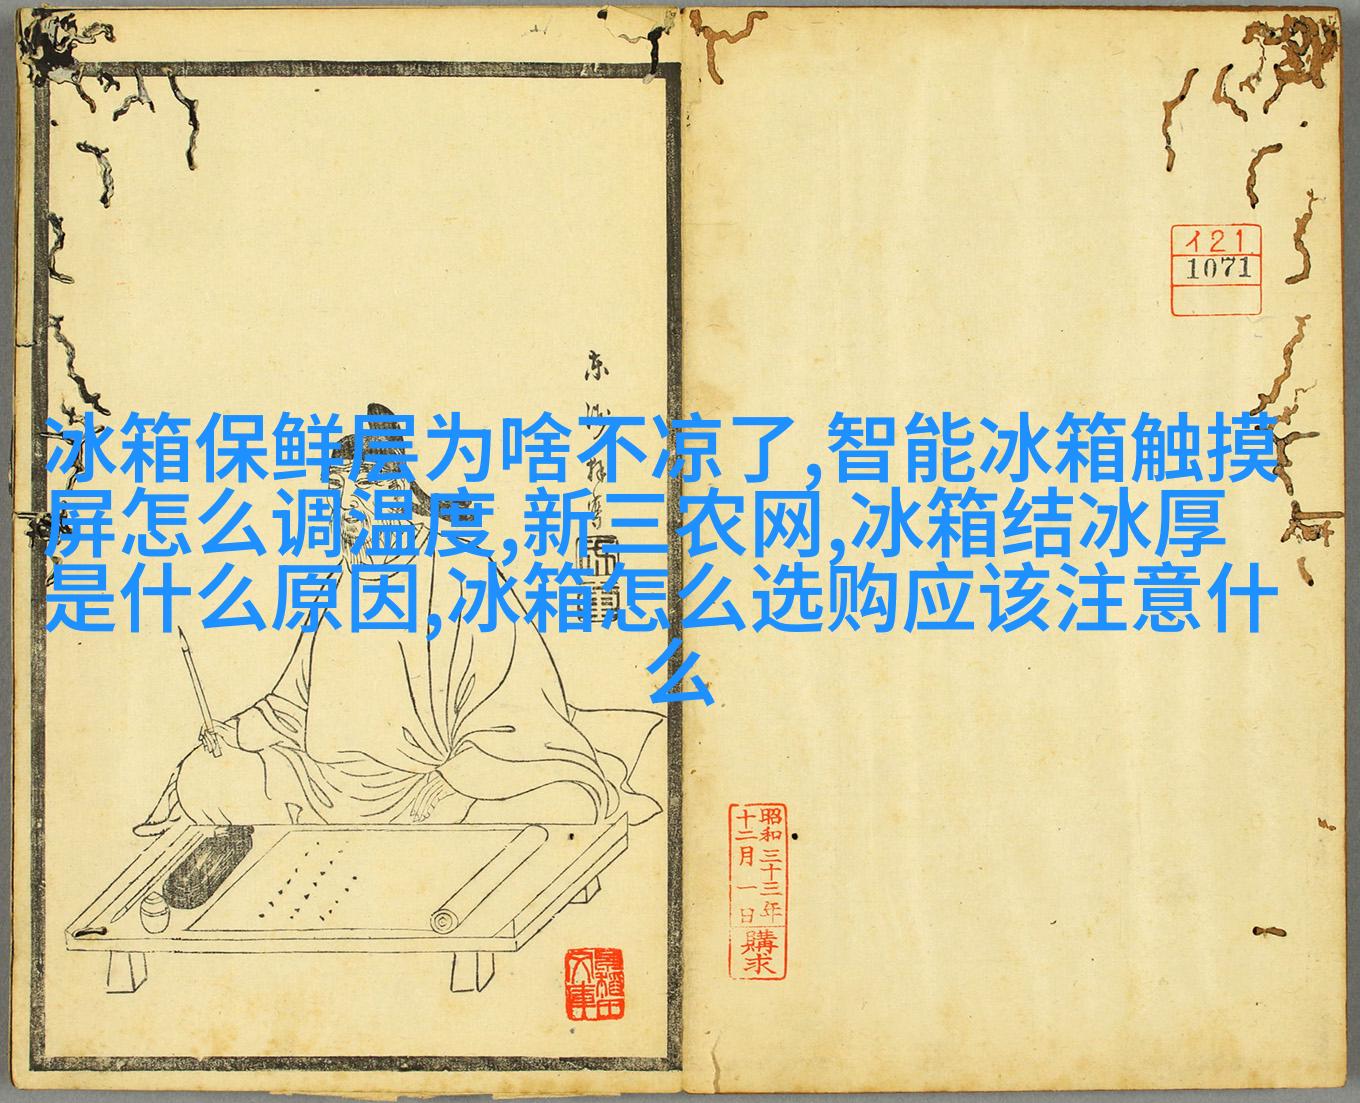 冰箱保鲜层为啥不凉了,智能冰箱触摸
屏怎么调温度,新三农网,冰箱结冰厚
是什么原因,冰箱怎么选购应该注意什
么
イ21
1071
昭和三十三年
十二月一日
購求